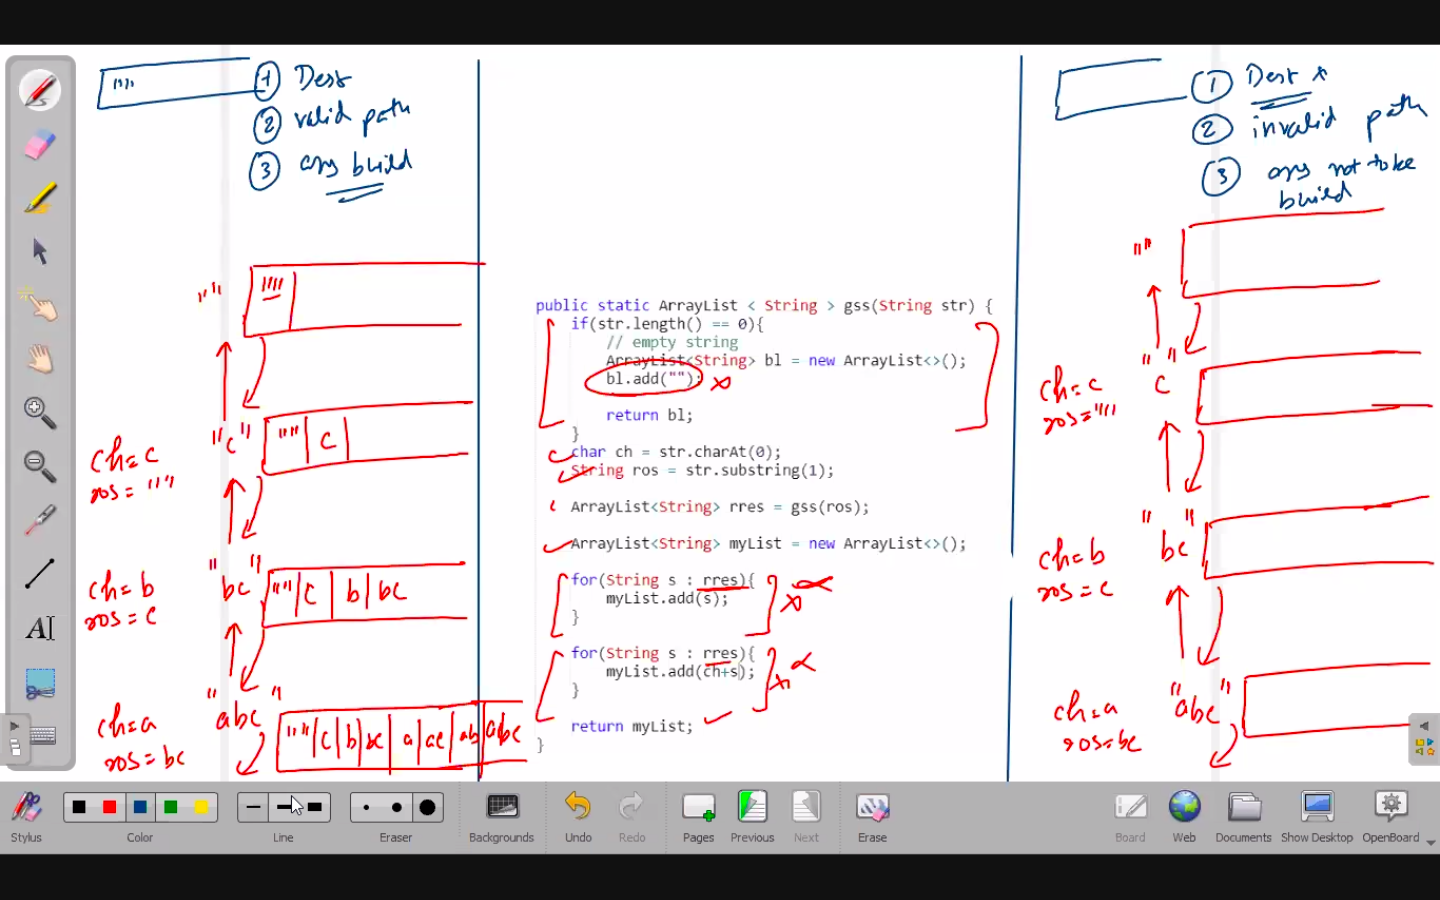 ""
① Dest
② valid path
③ ans build
"" ""
"c" "" | c |
ch=c
ros=""
"bc" "" | c | b | bc
ch=b
ros=c
"abc" "" | c | b | bc | a | ac | ab | abc
ch=a
ros=bc
public static ArrayList < String > gss(String str) {
if(str.length() == 0){
// empty string
ArrayList<String> bl = new ArrayList<>();
bl.add(""); x
return bl;
}
char ch = str.charAt(0);
String ros = str.substring(1);
ArrayList<String> rres = gss(ros);
ArrayList<String> myList = new ArrayList<>();
for(String s : rres){
myList.add(s);
}
for(String s : rres){
myList.add(ch+s);
}
return myList;
}
① Dest x
② invalid path
③ ans not to be
build
""
"c"
ch=c
ros=""
"bc"
ch=b
ros=c
"abc"
ch=a
ros=bc
AI
Stylus
Color
Line
Eraser
Backgrounds
Undo
Redo
Pages
Previous
Next
Erase
Board
Web
Documents
Show Desktop
OpenBoard